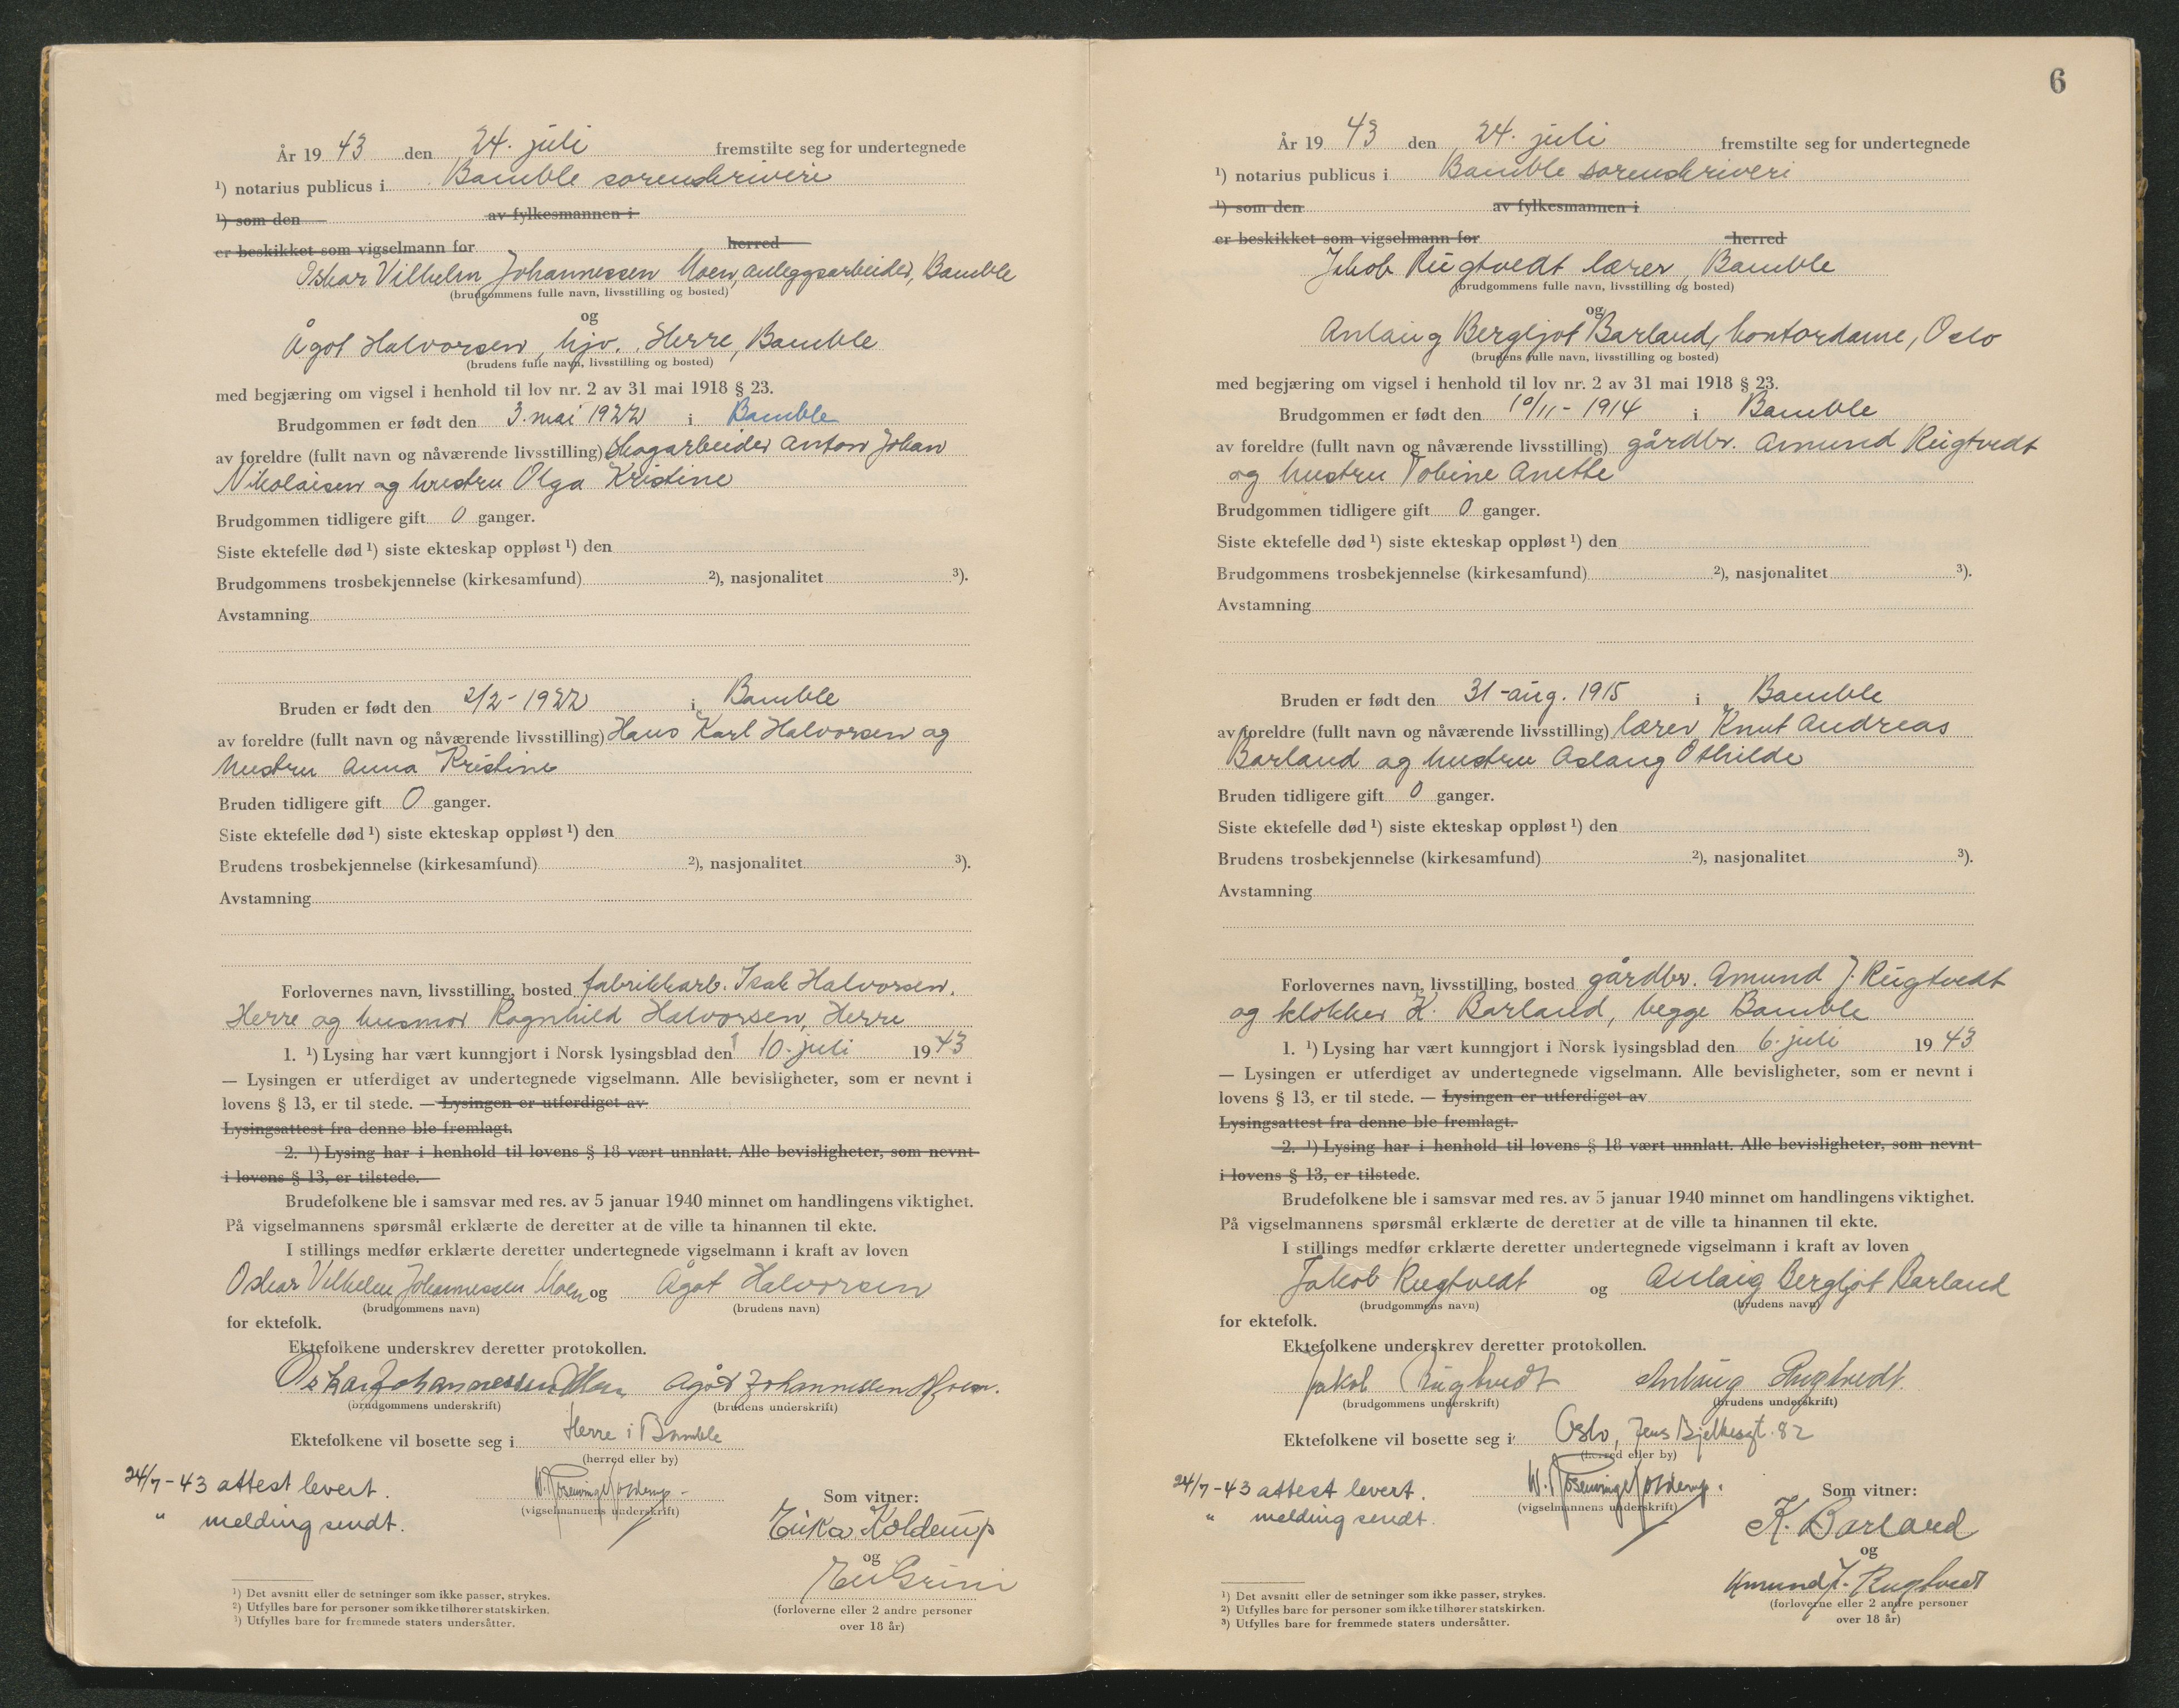 År 19 43 den 24. juli fremstilte seg for undertegnede
¹) notarius publicus i Bamble sorenskriveri
¹) som den av fylkesmannen i
er beskikket som vigselmann for herred
Oskar Vilhelm Johannessen Moen, anleggsarbeider, Bamble
(brudgommens fulle navn, livsstilling og bosted)
og
Ågot Halvorsen, hjv. Herre, Bamble
(brudens fulle navn, livsstilling og bosted)
med begjæring om vigsel i henhold til lov nr. 2 av 31 mai 1918 § 23.
Brudgommen er født den 3. mai 1922 i Bamble
av foreldre (fullt navn og nåværende livsstilling) skogarbeider Anton Johan
Nikolaisen og hustru Olga Kristine
Brudgommen tidligere gift 0 ganger.
Siste ektefelle død ¹) siste ekteskap oppløst ¹) den
Brudgommens trosbekjennelse (kirkesamfund) ²), nasjonalitet ³).
Avstamning
Bruden er født den 2/2 - 1922 i Bamble
av foreldre (fullt navn og nåværende livsstilling) Hans Karl Halvorsen og
hustru Anna Kristine
Bruden tidligere gift 0 ganger.
Siste ektefelle død ¹) siste ekteskap oppløst ¹) den
Brudens trosbekjennelse (kirkesamfund) ²), nasjonalitet ³).
Avstamning
Forlovernes navn, livsstilling, bosted fabrikkarb. Isak Halvorsen,
Herre og husmor Ragnhild Halvorsen, Herre
1. ¹) Lysing har vært kunngjort i Norsk lysingsblad den 10. juli 19 43
— Lysingen er utferdiget av undertegnede vigselmann. Alle bevisligheter, som er nevnt i
lovens § 13, er til stede. — Lysingen er utferdiget av
Lysingsattest fra denne ble fremlagt.
2. ¹) Lysing har i henhold til lovens § 18 vært unnlatt. Alle bevisligheter, som nevnt
i lovens § 13, er tilstede.
Brudefolkene ble i samsvar med res. av 5 januar 1940 minnet om handlingens viktighet.
På vigselmannens spørsmål erklærte de deretter at de ville ta hinannen til ekte.
I stillings medfør erklærte deretter undertegnede vigselmann i kraft av loven
Oskar Vilhelm Johannessen Moen og Ågot Halvorsen
(brudgommens navn) (brudens navn)
for ektefolk.
Ektefolkene underskrev deretter protokollen.
Oskar Johannessen Moen Ågot Johannessen Moen.
(brudgommens underskrift) (brudens underskrift)
Ektefolkene vil bosette seg i Herre i Bamble
(herred eller by)
24/7 - 43 attest levert.
" melding sendt.
W. Rosenvinge Kolderup
(vigselmannens underskrift)
Som vitner:
Erika Kolderup
og
(forloverne eller 2 andre personer
over 18 år)
¹) Det avsnitt eller de setninger som ikke passer, strykes.
²) Utfylles bare for personer som ikke tilhører statskirken.
³) Utfylles bare for fremmede staters undersåtter.
6
År 19 43 den 24. juli fremstilte seg for undertegnede
¹) notarius publicus i Bamble sorenskriveri
¹) som den av fylkesmannen i
er beskikket som vigselmann for herred
Jakob Rugtvedt lærer, Bamble
(brudgommens fulle navn, livsstilling og bosted)
og
Anlaug Bergljot Barland, kontordame, Oslo
(brudens fulle navn, livsstilling og bosted)
med begjæring om vigsel i henhold til lov nr. 2 av 31 mai 1918 § 23.
Brudgommen er født den 10/11 - 1914 i Bamble
av foreldre (fullt navn og nåværende livsstilling) gårdbr. Amund Rugtvedt
og hustru Tobine Anette
Brudgommen tidligere gift 0 ganger.
Siste ektefelle død ¹) siste ekteskap oppløst ¹) den
Brudgommens trosbekjennelse (kirkesamfund) ²), nasjonalitet ³).
Avstamning
Bruden er født den 31 - aug. 1915 i Bamble
av foreldre (fullt navn og nåværende livsstilling) lærer Knut Andreas
Barland og hustru Aslaug Othilde
Bruden tidligere gift 0 ganger.
Siste ektefelle død ¹) siste ekteskap oppløst ¹) den
Brudens trosbekjennelse (kirkesamfund) ²), nasjonalitet ³).
Avstamning
Forlovernes navn, livsstilling, bosted gårdbr. Amund J. Rugtvedt
og klokker K. Barland, begge Bamble
1. ¹) Lysing har vært kunngjort i Norsk lysingsblad den 6. juli 19 43
— Lysingen er utferdiget av undertegnede vigselmann. Alle bevisligheter, som er nevnt i
lovens § 13, er til stede. — Lysingen er utferdiget av
Lysingsattest fra denne ble fremlagt.
2. ¹) Lysing har i henhold til lovens § 18 vært unnlatt. Alle bevisligheter, som nevnt
i lovens § 13, er tilstede.
Brudefolkene ble i samsvar med res. av 5 januar 1940 minnet om handlingens viktighet.
På vigselmannens spørsmål erklærte de deretter at de ville ta hinannen til ekte.
I stillings medfør erklærte deretter undertegnede vigselmann i kraft av loven
Jakob Rugtvedt og Anlaug Bergljot Barland
(brudgommens navn) (brudens navn)
for ektefolk.
Ektefolkene underskrev deretter protokollen.
Jakob Rugtvedt Anlaug Rugtvedt.
(brudgommens underskrift) (brudens underskrift)
Ektefolkene vil bosette seg i Oslo, Jens Bjelkesgt. 82
(herred eller by)
24/7 - 43 attest levert.
" melding sendt.
W. Rosenvinge Kolderup.
(vigselmannens underskrift)
Som vitner:
K. Barland
og
Amund J. Rugtvedt
(forloverne eller 2 andre personer
over 18 år)
¹) Det avsnitt eller de setninger som ikke passer, strykes.
²) Utfylles bare for personer som ikke tilhører statskirken.
³) Utfylles bare for fremmede staters undersåtter.